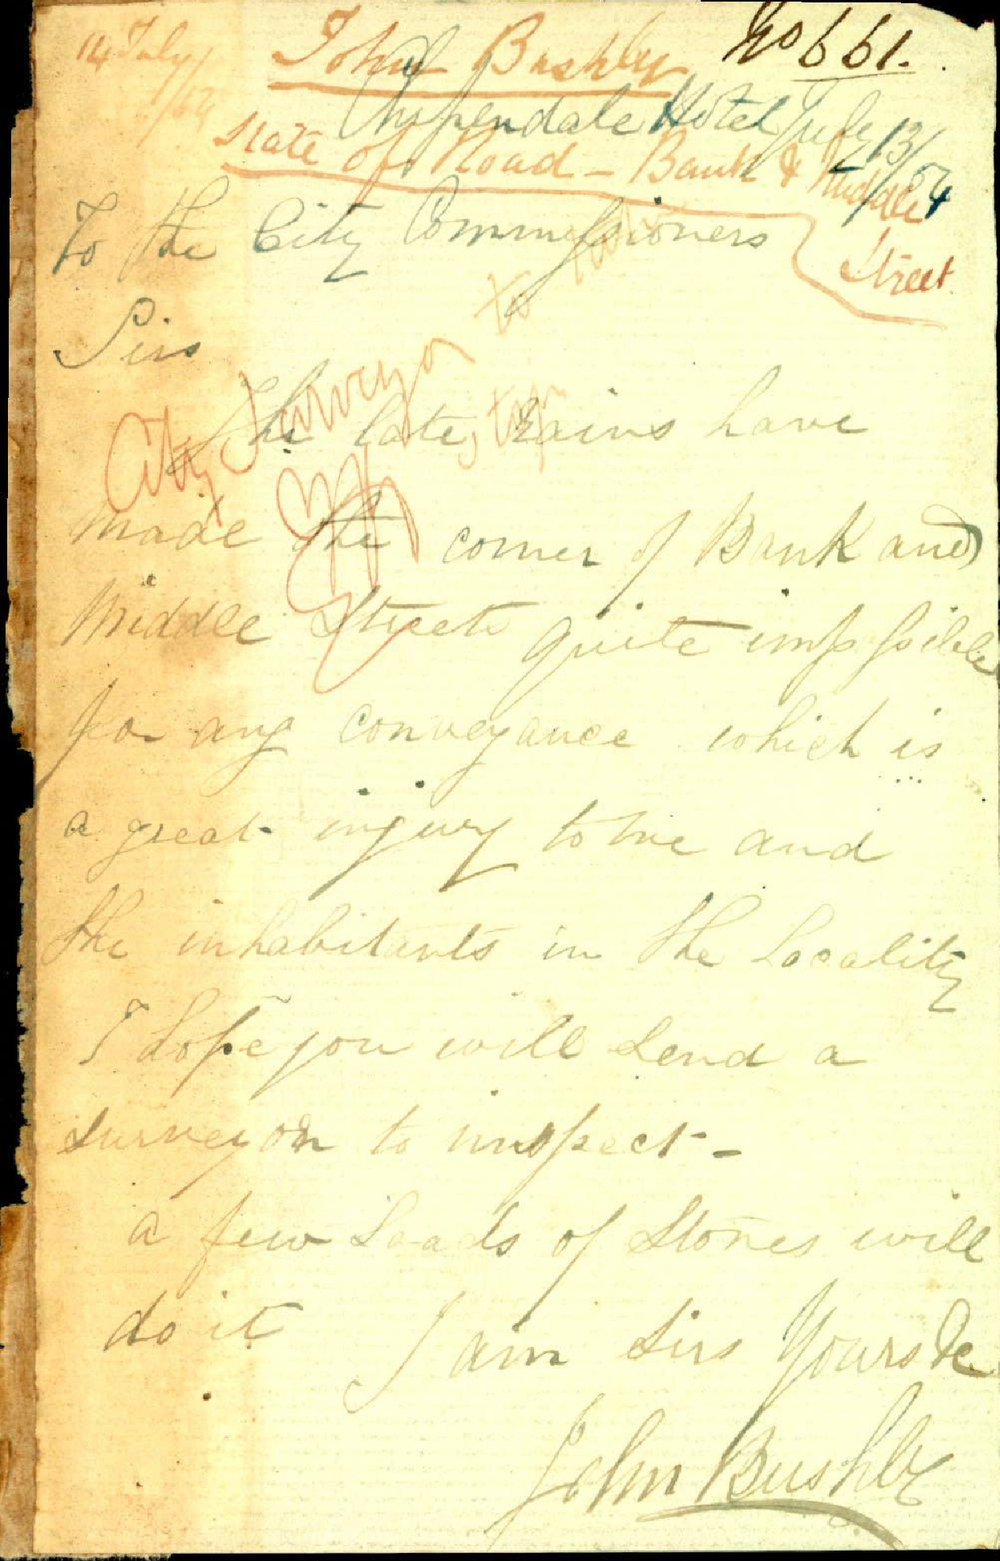 14 July
/54
John Bushby
No 661.
Chippendale Hotel July 13/54
State of Road - Bank & Middle
Street
To the City Commissioners
Sirs
City Surveyor to
The late rains have
made the corner of Bank and
Middle Streets quite impossible
for any conveyance which is
a great injury to me and
the inhabitants in the Locality
I hope you will send a
surveyor to inspect -
a few Loads of Stones will
do it
I am Sirs Yours &c
John Bushby